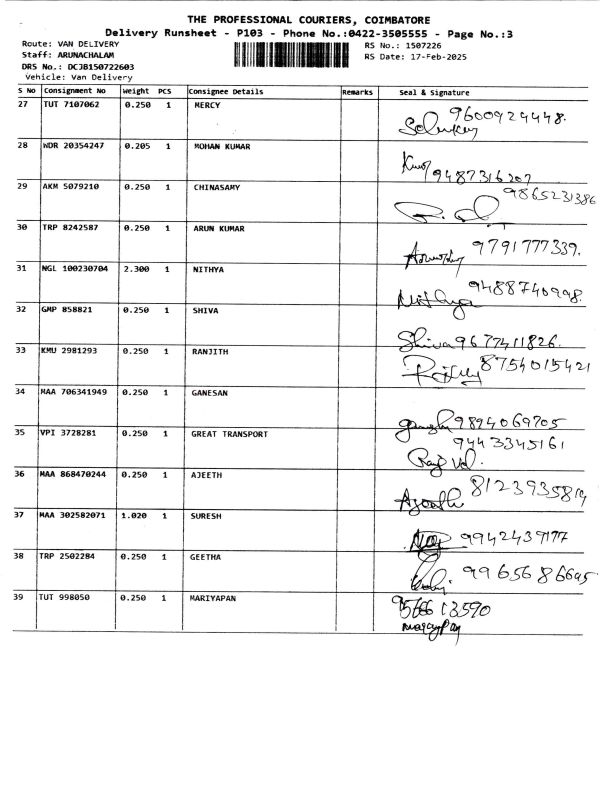 THE PROFESSIONAL COURIERS, COIMBATORE
Delivery Runsheet - P103 - Phone No.:0422-3505555 - Page No.:3
Route: VAN DELIVERY RS No.: 1507226
Staff: ARUNACHALAM RS Date: 17-Feb-2025
DRS No.: DCJB150722603
Vehicle: Van Delivery
S No Consignment No Weight PCS Consignee Details Remarks Seal & Signature
27 TUT 7107062 0.250 1 MERCY 9600924448.
28 WDR 20354247 0.205 1 MOHAN KUMAR 9487316207
29 AKM 5079210 0.250 1 CHINASAMY 9865231386
30 TRP 8242587 0.250 1 ARUN KUMAR 9791777339.
31 NGL 100230704 2.300 1 NITHYA Nithya 9488740998.
32 GMP 858821 0.250 1 SHIVA Shiva 9677411826.
33 KMU 2981293 0.250 1 RANJITH 8754015421
34 MAA 706341949 0.250 1 GANESAN 9894069705
35 VPI 3728281 0.250 1 GREAT TRANSPORT 9443345161
36 MAA 868470244 0.250 1 AJEETH 8123935819
37 MAA 302582071 1.020 1 SURESH 9942439177
38 TRP 2502284 0.250 1 GEETHA 9965686695
39 TUT 998050 0.250 1 MARIYAPAN